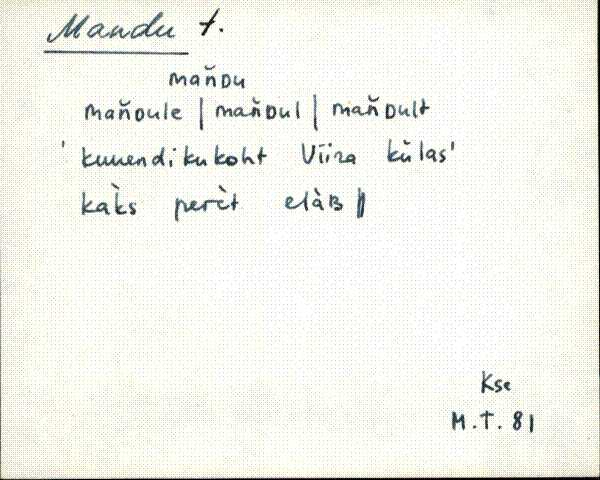 Mandu t.
man̆Du
man̆Dule | man̆Dul | man̆Dult
' kuuendikukoht Viira külas'
kàks perèt elàB ||
Kse
M.T. 81